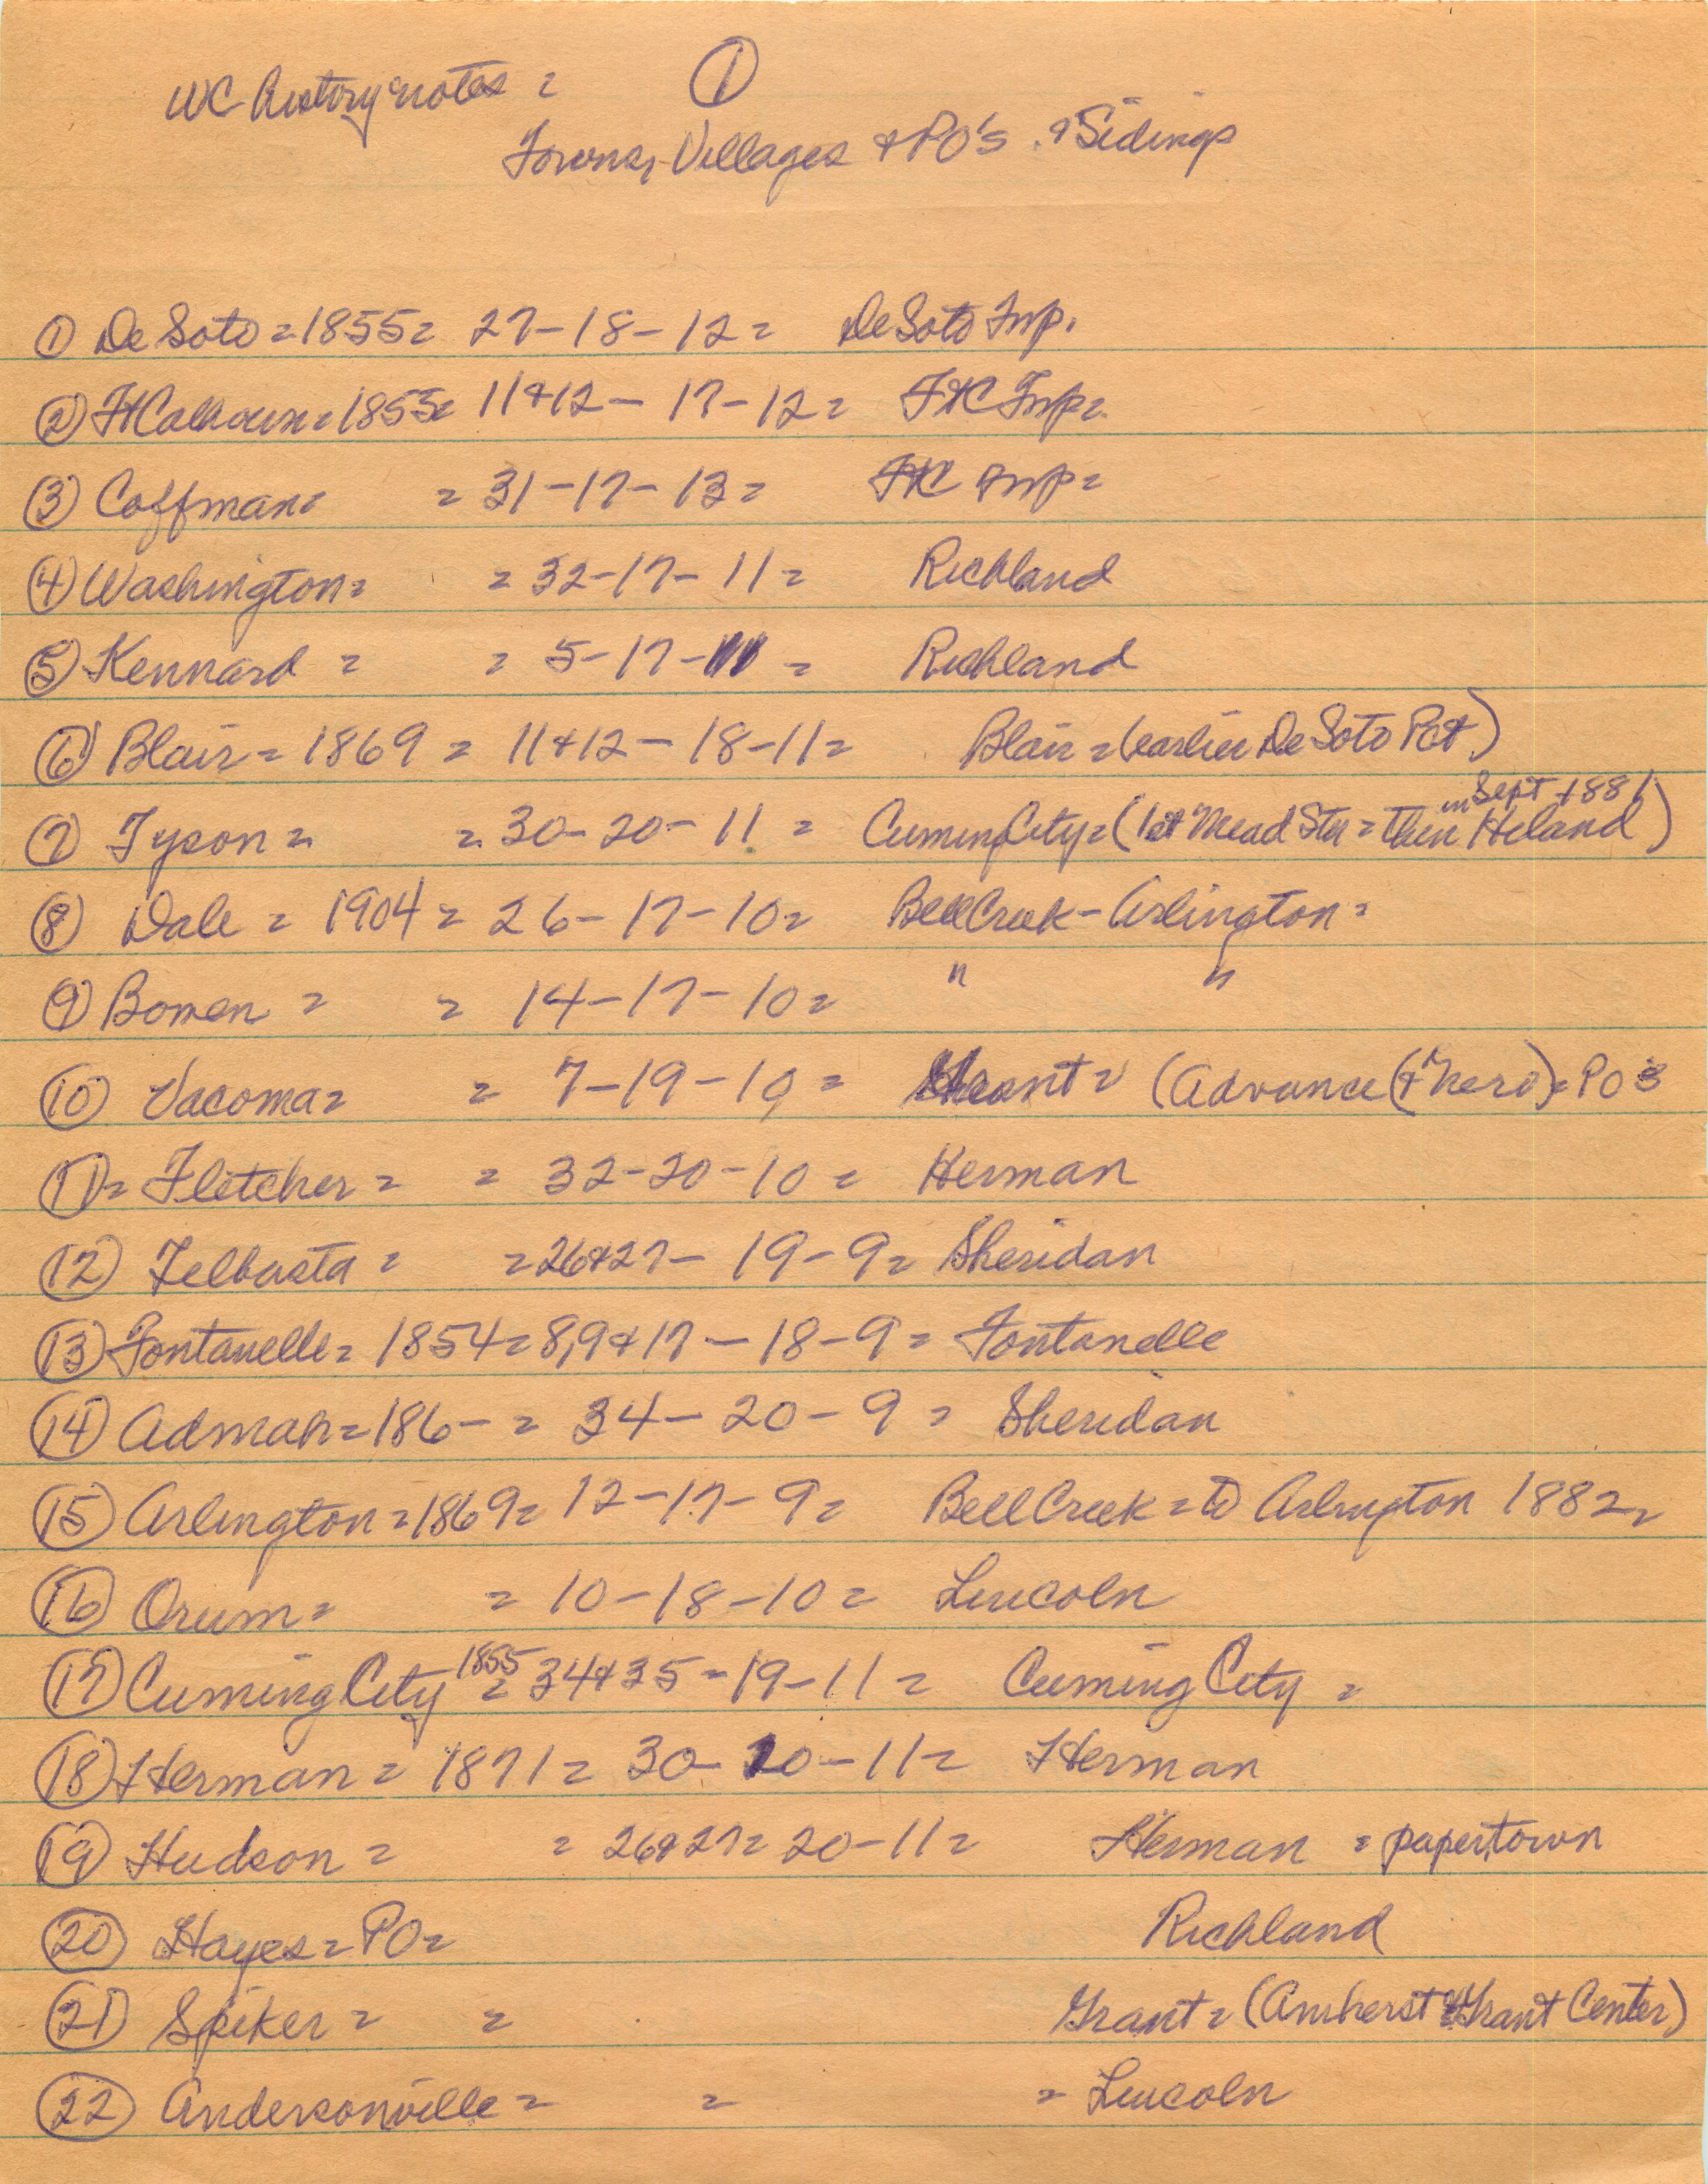 WC History notes =
①
Towns, Villages & PO's. & Sidings
① De Soto = 1855 = 27-18-12 = De Soto Twp.
② Ft Calhoun = 1855 = 11+12 - 17-12 = Ft C Twp =
③ Coffman = = 31-17-13 = Ft C Twp =
④ Washington = = 32-17-11 = Richland
⑤ Kennard = = 5-17-11 = Richland
⑥ Blair = 1869 = 11+12 - 18-11 = Blair = (earlier De Soto Pct.)
in Sept 1881
⑦ Tyson = = 30-20-11 = Cuming City = (1st Mead Sta = then Hiland)
⑧ Dale = 1904 = 26-17-10 = Bell Creek - Arlington =
⑨ Bowen = = 14-17-10 = " "
⑩ Vacoma = = 7-19-10 = Grant = (Advance (+ Nero) = PO's
⑪ = Fletcher = = 32-20-10 = Herman
⑫ Telbasta = = 26+27 - 19-9 = Sheridan
⑬ Fontanelle = 1854 = 8,9+17 - 18-9 = Fontanelle
⑭ Admah = 186- = 34-20-9 = Sheridan
⑮ Arlington = 1869 = 12-17-9 = Bell Creek = to Arlington 1882 =
⑯ Orum = = 10-18-10 = Lincoln
⑰ Cuming City 1855 = 34+35 - 19-11 = Cuming City =
⑱ Herman = 1871 = 30-20-11 = Herman
⑲ Hudson = = 26+27 = 20-11 = Herman = paper town
⑳ Hayes = PO = Richland
㉑ Spiker = = Grant = (Amherst & Grant Center)
㉒ Andersonville = = = Lincoln